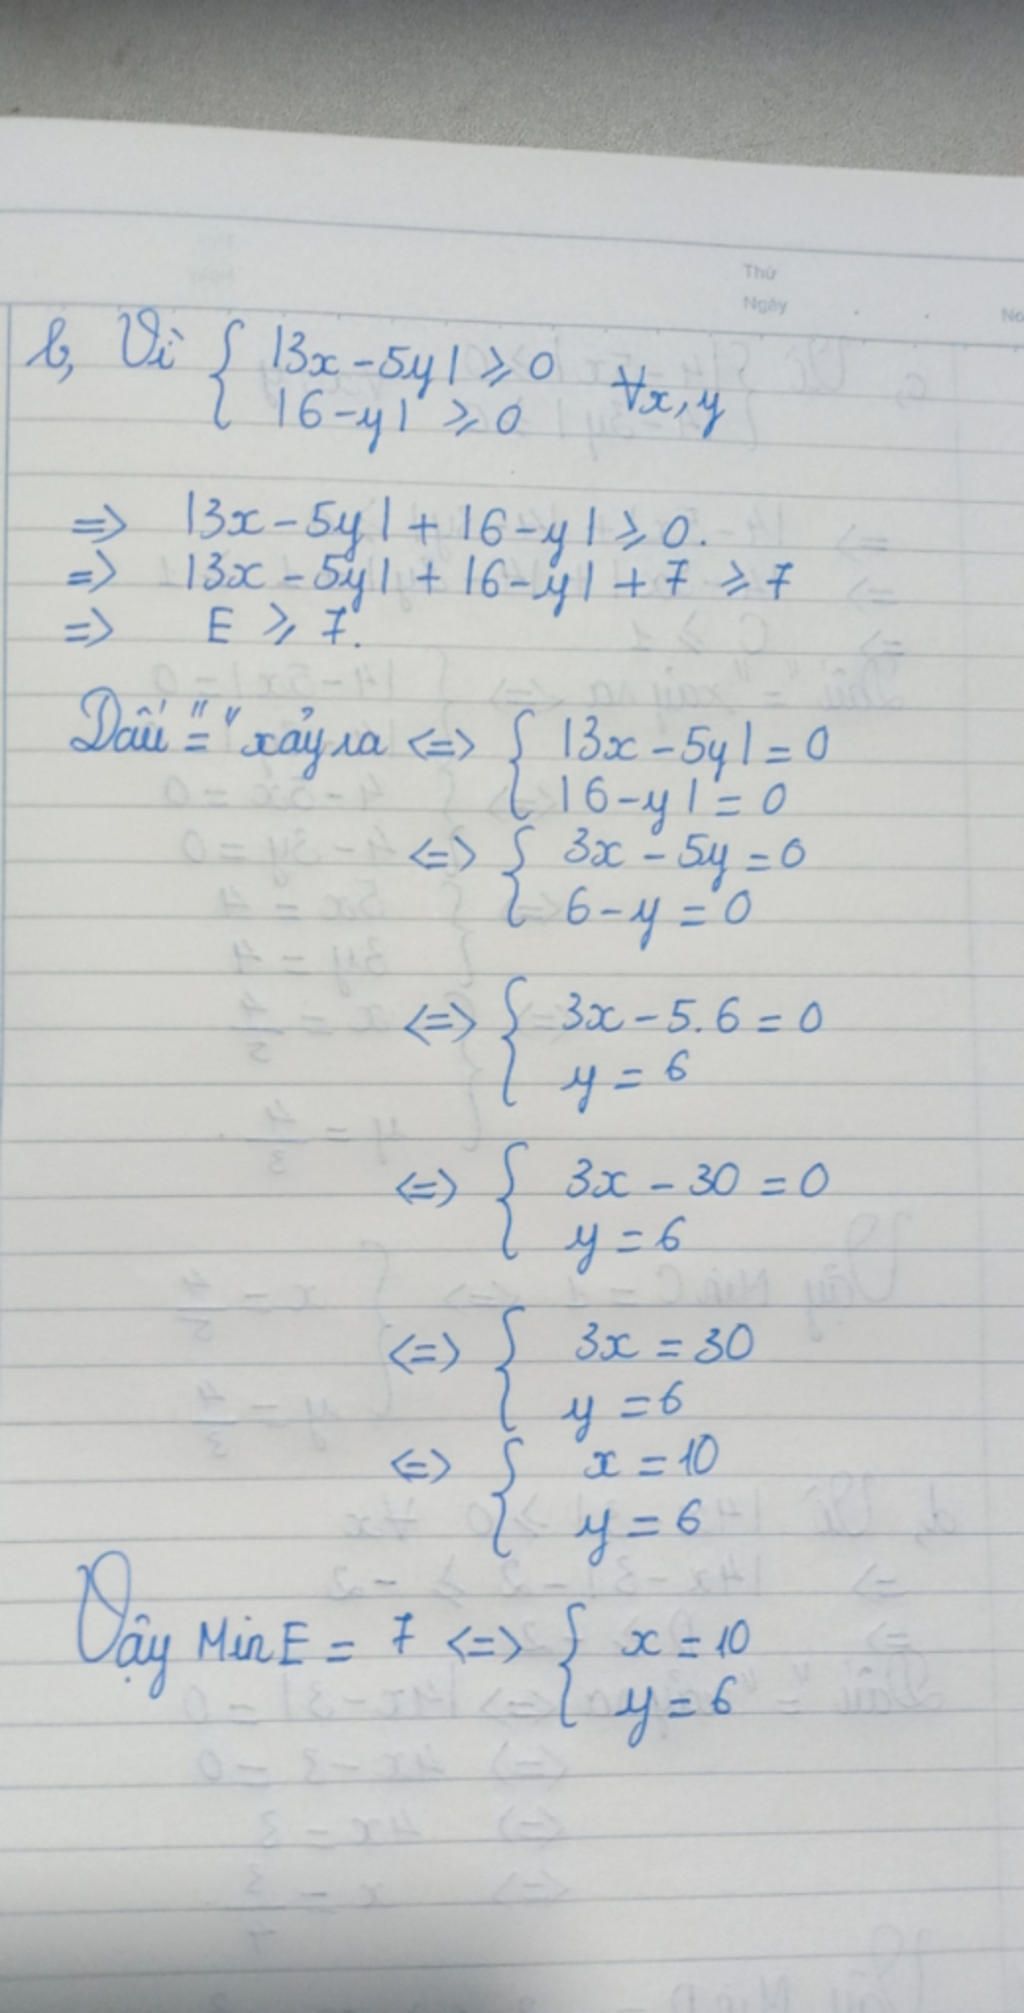 Thứ
Ngày
No
b, Vì { |3x - 5y| ≥ 0 ∀x, y
|6 - y| ≥ 0
=> |3x - 5y| + |6 - y| ≥ 0.
=> |3x - 5y| + |6 - y| + 7 ≥ 7
=> E ≥ 7.
Dấu "=" xảy ra <=> { |3x - 5y| = 0
|6 - y| = 0
<=> { 3x - 5y = 0
6 - y = 0
<=> { 3x - 5.6 = 0
y = 6
<=> { 3x - 30 = 0
y = 6
<=> { 3x = 30
y = 6
<=> { x = 10
y = 6
Vậy Min E = 7 <=> { x = 10
y = 6